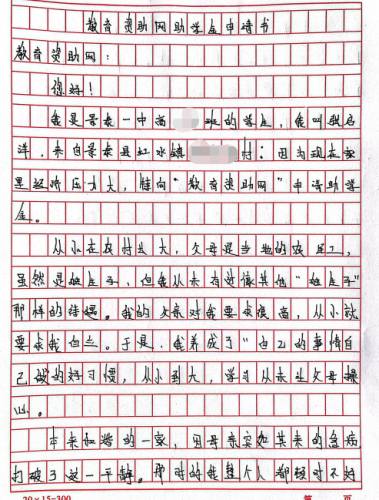 教育资助网助学金申请书
教育资助网:
您好!
我是景泰一中高 班的学生,我叫殷启
洋,来自景泰县红水镇 村;因为现在家
里经济压力大,特向“教育资助网”申请助学
金。
从小在农村长大,父母是当地的农民,
虽然是独生子,但我从未有过像其他“独生子”
那样的待遇。我的父亲对我要求很高,从小就
要求我自立。于是,我养成了“自己的事情自
己做的好习惯,从小到大,学习从未让父母操
心。
本来和谐的一家,因母亲突如其来的急病
打破了这一平静。那时的我整个人都顿时不好
20×15=300 第 页